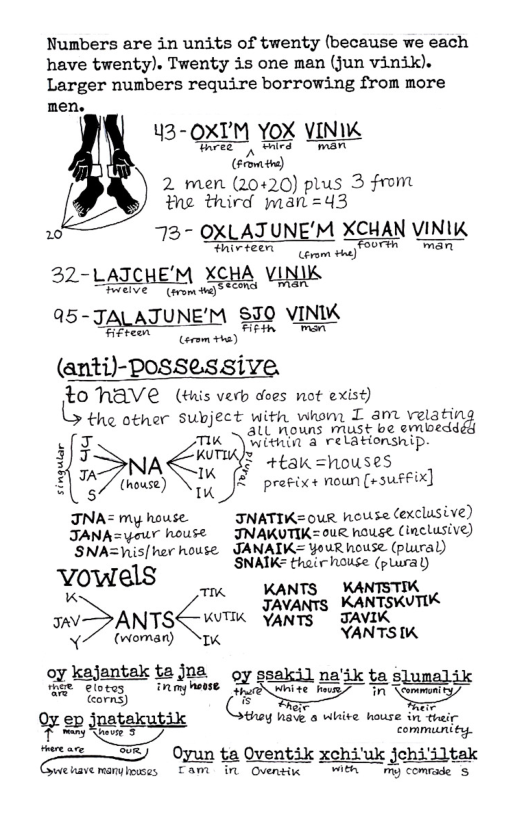 Numbers are in units of twenty (because we each
have twenty). Twenty is one man (jun vinik).
Larger numbers require borrowing from more
men.
43 - OXI'M YOX VINIK
three third man
(from the)
2 men (20+20) plus 3 from
the third man = 43
20
73 - OXLAJUNE'M XCHAN VINIK
thirteen (from the) fourth man
32 - LAJCHE'M XCHA VINIK
twelve (from the) second man
95 - JALAJUNE'M SJO VINIK
fifteen (from the) fifth man
(anti)-possessive
to have (this verb does not exist)
the other subject with whom I am relating
all nouns must be embedded
within a relationship.
singular
J
J
JA
S
NA
(house)
TIK
KUTIK
IK
IK
plural
+tak = houses
prefix + noun [+suffix]
JNA = my house
JANA = your house
SNA = his/her house
JNATIK = our house (exclusive)
JNAKUTIK = our house (inclusive)
JANAIK = your house (plural)
SNAIK = their house (plural)
vowels
K
JAV
Y
ANTS
(woman)
TIK
KUTIK
IK
KANTS
JAVANTS
YANTS
KANTSTIK
KANTSKUTIK
JAVIK
YANTSIK
oy kajantak ta jna
there are elotes (corns) in my house
oy ssakil na'ik ta slumalik
there is white house in community
their their
they have a white house in their
community
Oy ep jnatakutik
many house s
there are our
we have many houses
Oyun ta Oventik xchi'uk jchi'iltak
I am in Oventik with my comrade s